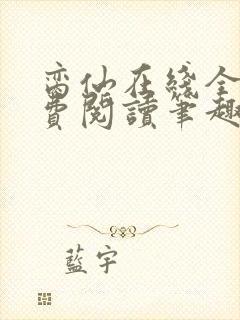 蛮仙在綫全
費閱讀筆趣
藍宇